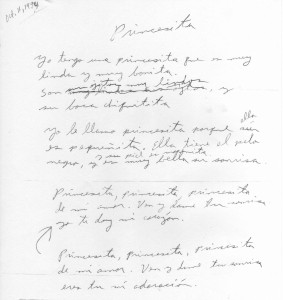 Oct. 4, 1994
Princesita
Yo tengo una princesita que es muy
linda y muy bonita.
Son y
su boca chiquitita
Yo le llamo princesita porque
ella
es pequeñita. Ella tiene el pelo
y su piel es
negro, y es muy bella su sonrisa
Princesita, princesita, princesita
de mi amor. Ven y dame tu sonrisa
yo te doy mi corazón.
Princesita, princesita, princesita
de mi amor. Ven y dame tu sonrisa
eres tu mi adoración.